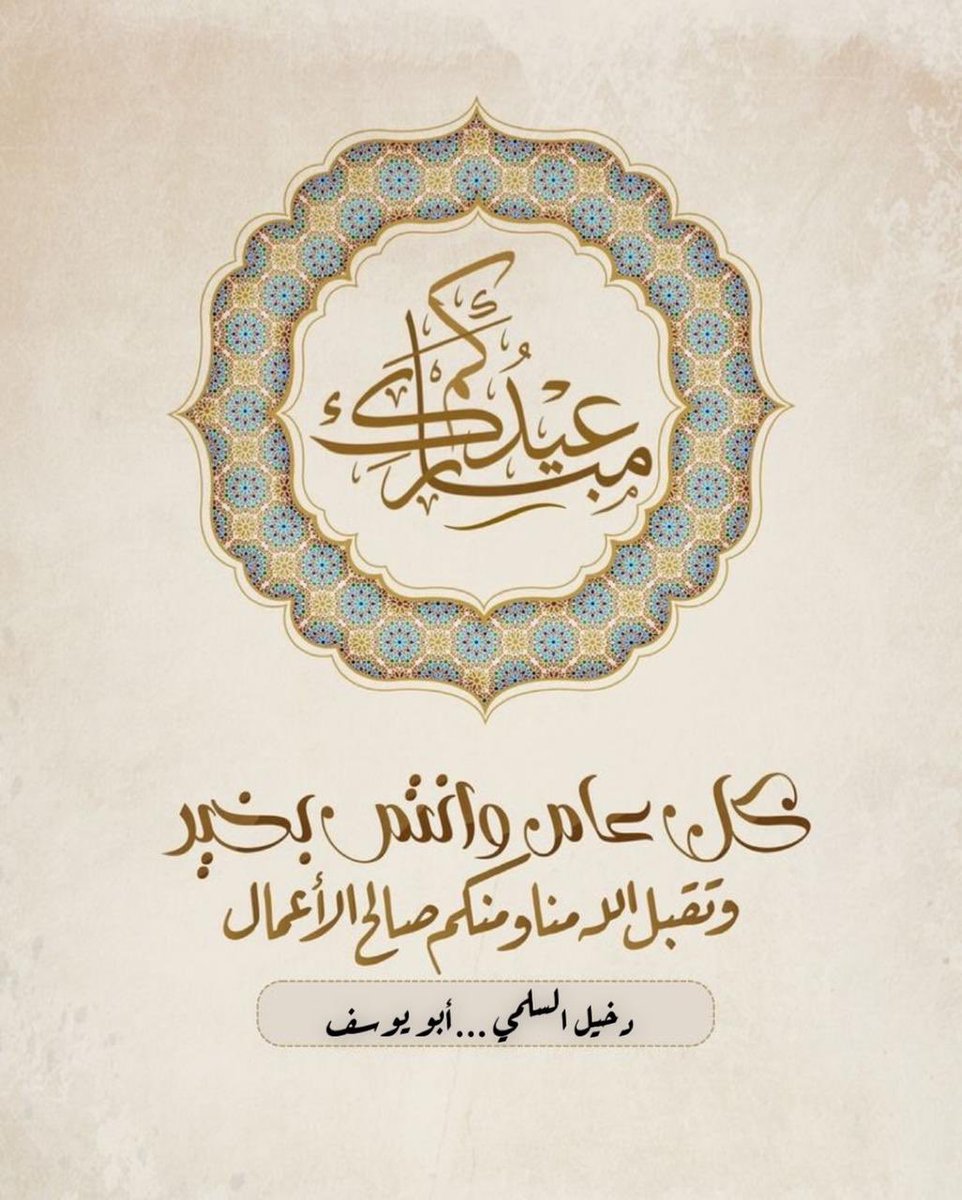 عيدُكم مبارك
كل عام وانتم بخير
وتقبل الله منا ومنكم صالح الأعمال
دخيل السلمي ...أبو يوسف